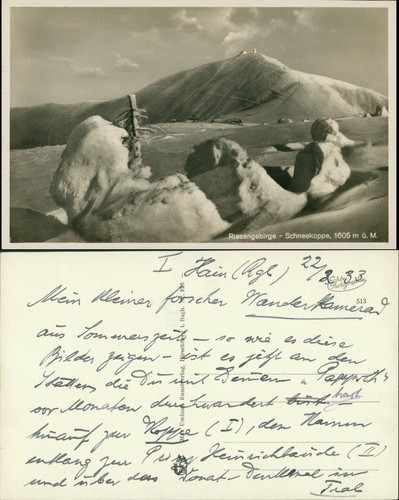 Riesengebirge - Schneekoppe, 1605 m ü. M.
I Hain (Rgb) 22/2 33
Mein kleiner forscher Wanderkamerad
513
aus Sommerszeit - so wie es diese
Bilder zeigen - ist es jetzt an den
Stätten, die Du mit Deinem "Pappoth"
vor Monaten durchwandert hast
hinauf zur Koppe (I), den Kamm
entlang zur Prinz Heinrichbaude (II)
und über das Denkmal im